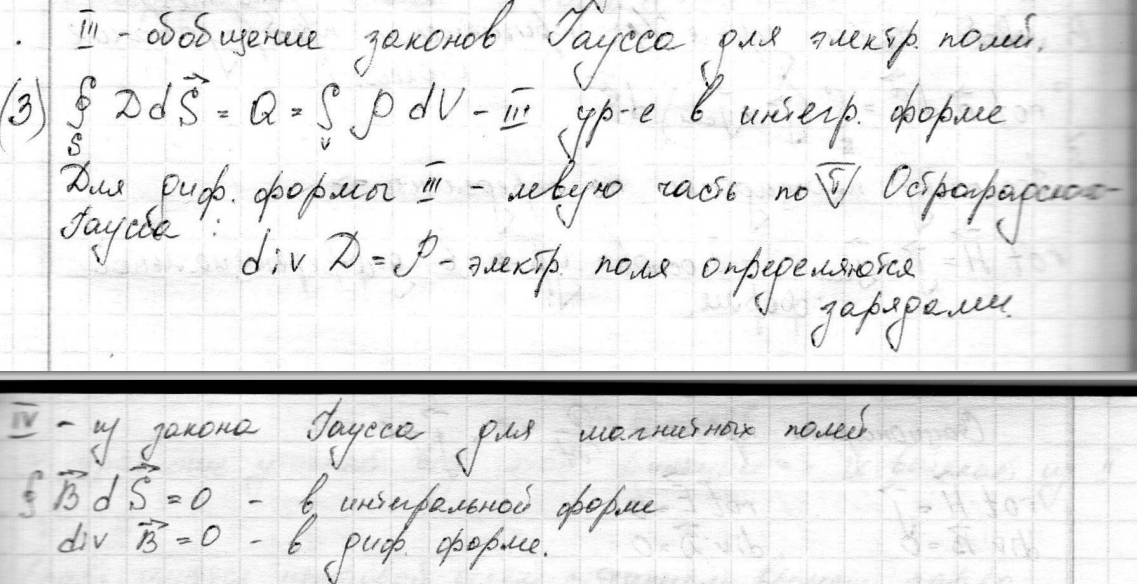 III - обобщение законов Гаусса для электр. полей.
(3) ∮_S D dS⃗ = Q = ∫_v ρ dV - III ур-е в интегр. форме
Для диф. формы III - левую часть по T Остроградского-
Гаусса :
div D = ρ - электр. поля определяются
зарядами.
IV - из закона Гаусса для магнитных полей
∮ B⃗ dS⃗ = 0 - в интегральной форме
div B⃗ = 0 - в диф. форме.